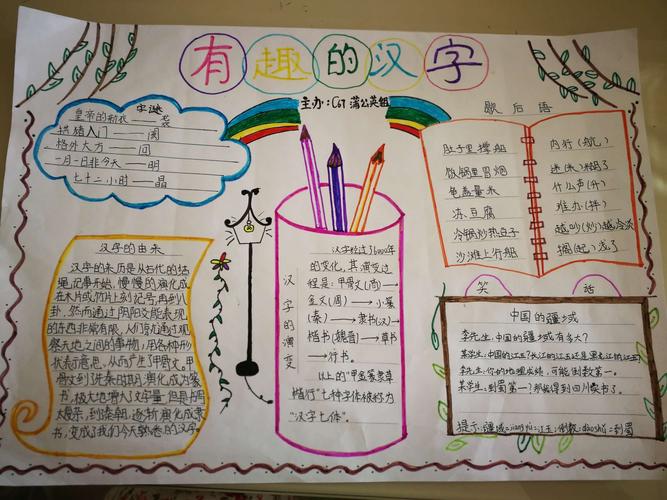 有趣的汉字
主办：C67 蒲公英组
字谜
皇帝的新衣——袭
拱猪入门——阂
格外大方——回
一月一日非今天——明
七十二小时——晶
歇后语
肚子里撑船
饭锅里冒烟
龟盖量米
冻豆腐
冷锅炒热豆子
沙滩上行船
内行（航）
迷（米）糊了
什么声（升）
难办（拌）
越吵（炒）越冷淡
搁（起）浅了
汉字的由来
汉字的来历是从古代的结
绳记事开始，慢慢的演化成
在木片或竹片上刻记号，再到八
卦，然而通过阴阳交能表现
的东西非常有限，人们就通过观
察天地之间的事物，用各种形
状表示意思，从而产生了甲骨文。甲
骨文到
以，极大地增加了文字量，但是书写
太复杂，到秦朝，逐渐演化成隶
书，变成了我们今天熟悉的汉字。
汉字的演变
汉字经过了6000年
的变化，其演变过
程是：甲骨文（商）→
金文（周）→小篆
（秦）→隶书（汉）→
楷书（魏晋）→草书
→行书。
以上的“甲金篆隶草
楷行”七种字体被称为
“汉字七体”。
笑话
中国的疆域
李先生：中国的疆域有多大？
某学生：中国的江五？长江的江五还是黑龙江的江五？
李先生：你的地理成绩，可能倒数第一。
某学生：到蜀第一？那就得到四川卖书了。
提示：疆域=jiang yu=江五；倒数=daoshu=到蜀